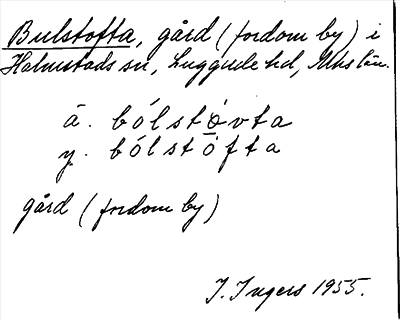 Bulstofta, gård (fordom by) i
Halmstads sn, Luggude hd, Mhs län.
ä. bólstòvta
y. bólstòfta
gård (fordom by)
I. Ingers 1955.